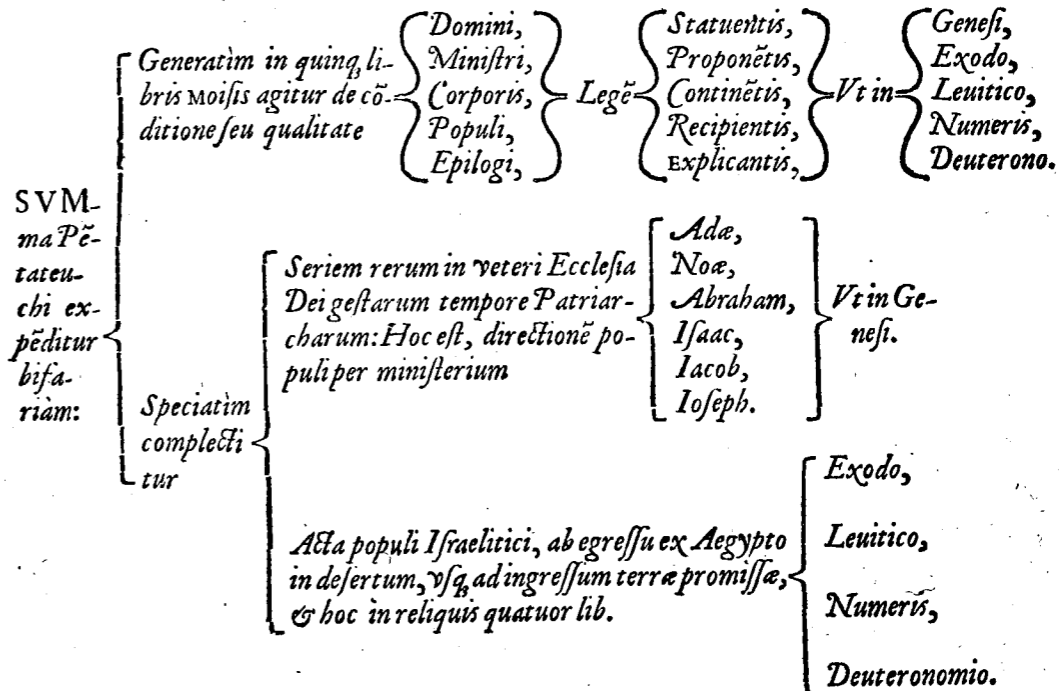 SVM-
ma Pẽ-
tateu-
chi ex-
pẽditur
bifa-
riàm:
Generatìm in quinq; li-
bris Moisis agitur de cõ-
ditione seu qualitate
Domini,
Ministri,
Corporis,
Populi,
Epilogi,
Legẽ
Statuentis,
Proponẽtis,
Continẽtis,
Recipientis,
Explicantis,
Vt in
Genesi,
Exodo,
Leuitico,
Numeris,
Deuterono.
Speciatìm
complecti
tur
Seriem rerum in veteri Ecclesia
Dei gestarum tempore Patriar-
charum: Hoc est, directionẽ po-
puli per ministerium
Adæ,
Noæ,
Abraham,
Isaac,
Iacob,
Ioseph.
Vt in Ge-
nesi.
Acta populi Israelitici, ab egressu ex Aegypto
in desertum, vsq; ad ingressum terræ promissæ,
& hoc in reliquis quatuor lib.
Exodo,
Leuitico,
Numeris,
Deuteronomio.